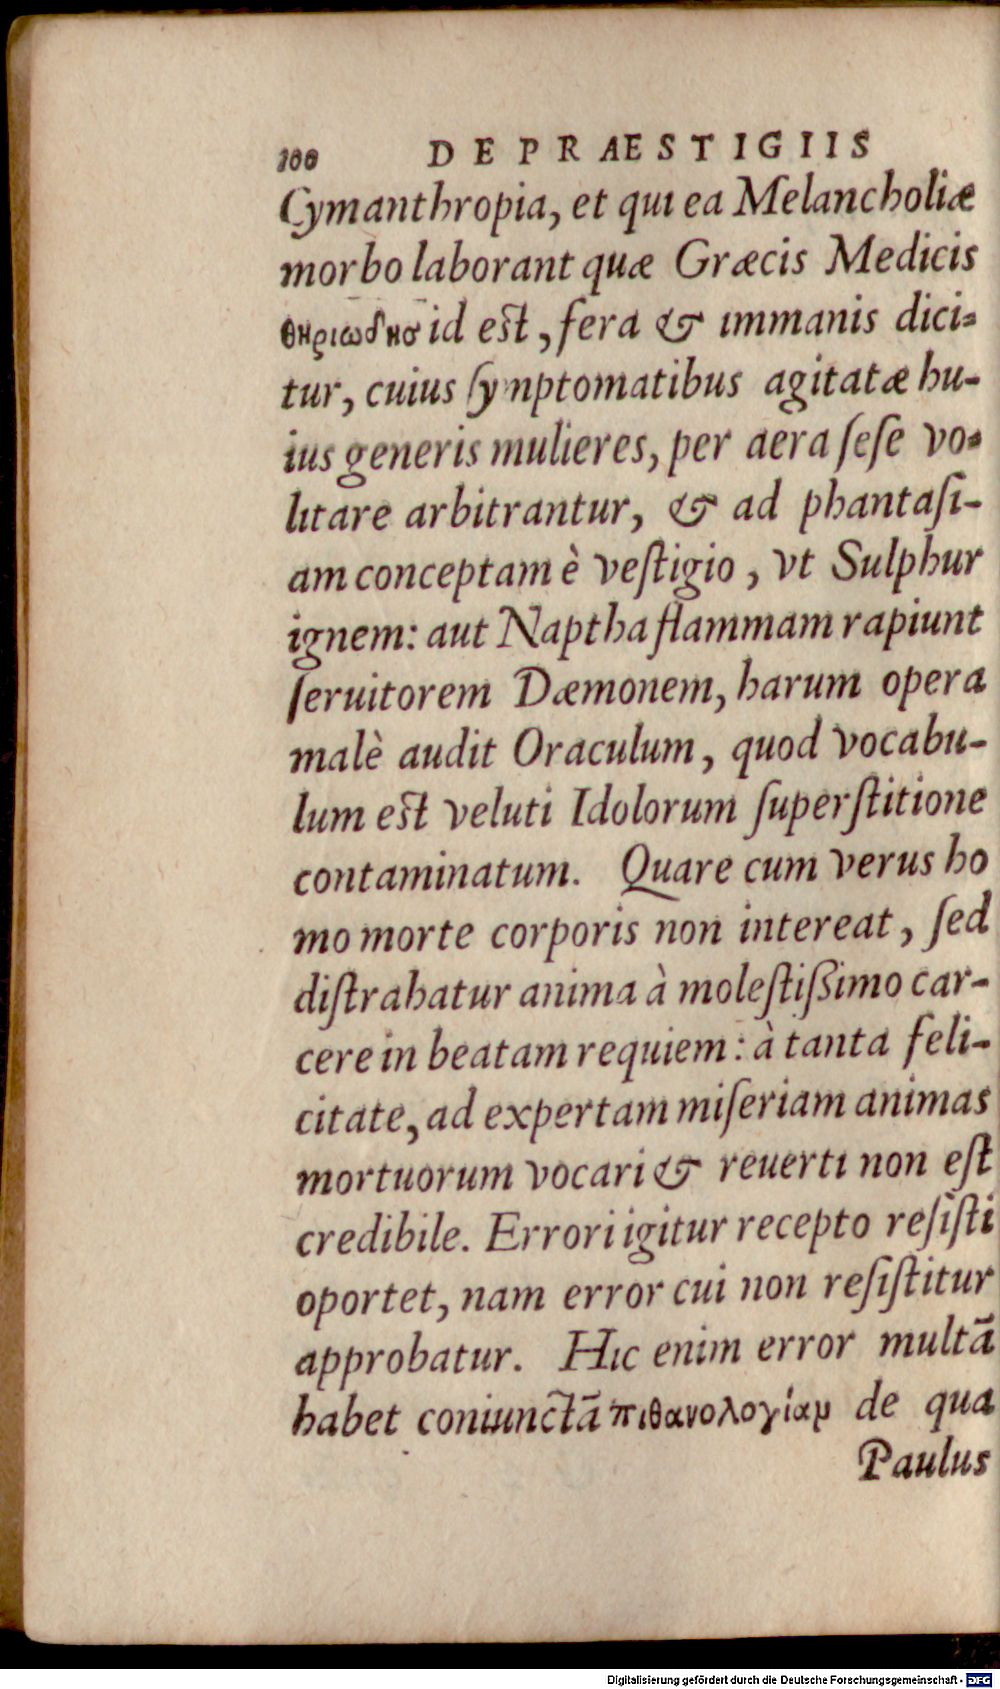 100 DE PRAESTIGIIS
Cymanthropia, et qui ea Melancholiæ
morbo laborant quæ Græcis Medicis
θηριωδησ id est, fera & immanis dici-
tur, cuius ſynptomatibus agitatæ hu-
ius generis mulieres, per aera ſeſe vo-
litare arbitrantur, & ad phantaſi-
am conceptam è veſtigio, vt Sulphur
ignem: aut Naptha flammam rapiunt
ſeruitorem Dæmonem, harum opera
malè audit Oraculum, quod vocabu-
lum est veluti Idolorum ſuperſtitione
contaminatum. Quare cum verus ho
mo morte corporis non intereat, ſed
diſtrahatur anima à moleſtiſsimo car-
cere in beatam requiem: à tanta feli-
citate, ad expertam miſeriam animas
mortuorum vocari & reuerti non eſt
credibile. Errori igitur recepto reſiſti
oportet, nam error cui non reſiſtitur
approbatur. Hic enim error multā
habet coniunctā πιθανολογίαμ de qua
Paulus
Digitalisierung gefördert durch die Deutsche Forschungsgemeinschaft - DFG